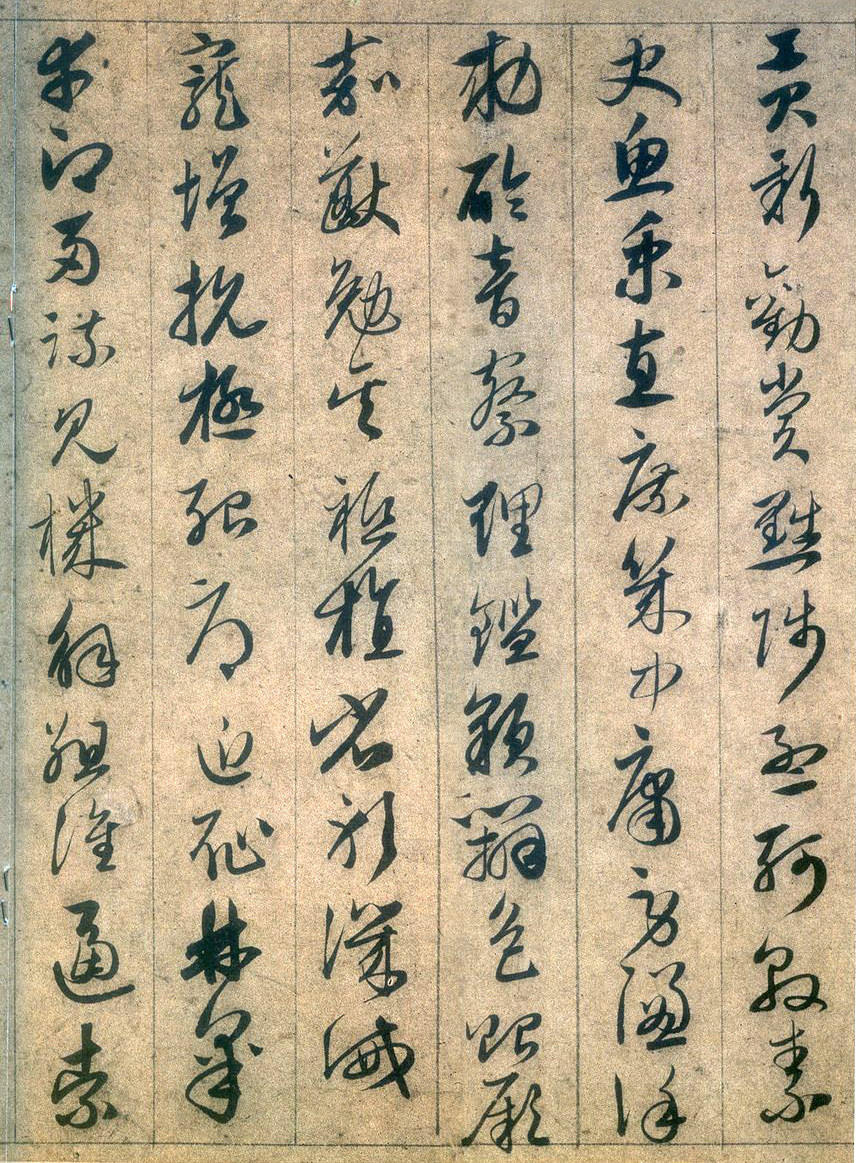 貢新勸賞黜陟孟軻敦素
史魚秉直庶幾中庸勞謙謹
勅聆音察理鑑貌辨色貽厥
嘉猷勉其祗植省躬譏誡
寵增抗極殆辱近恥林皋
幸即兩疏見機解組誰逼索